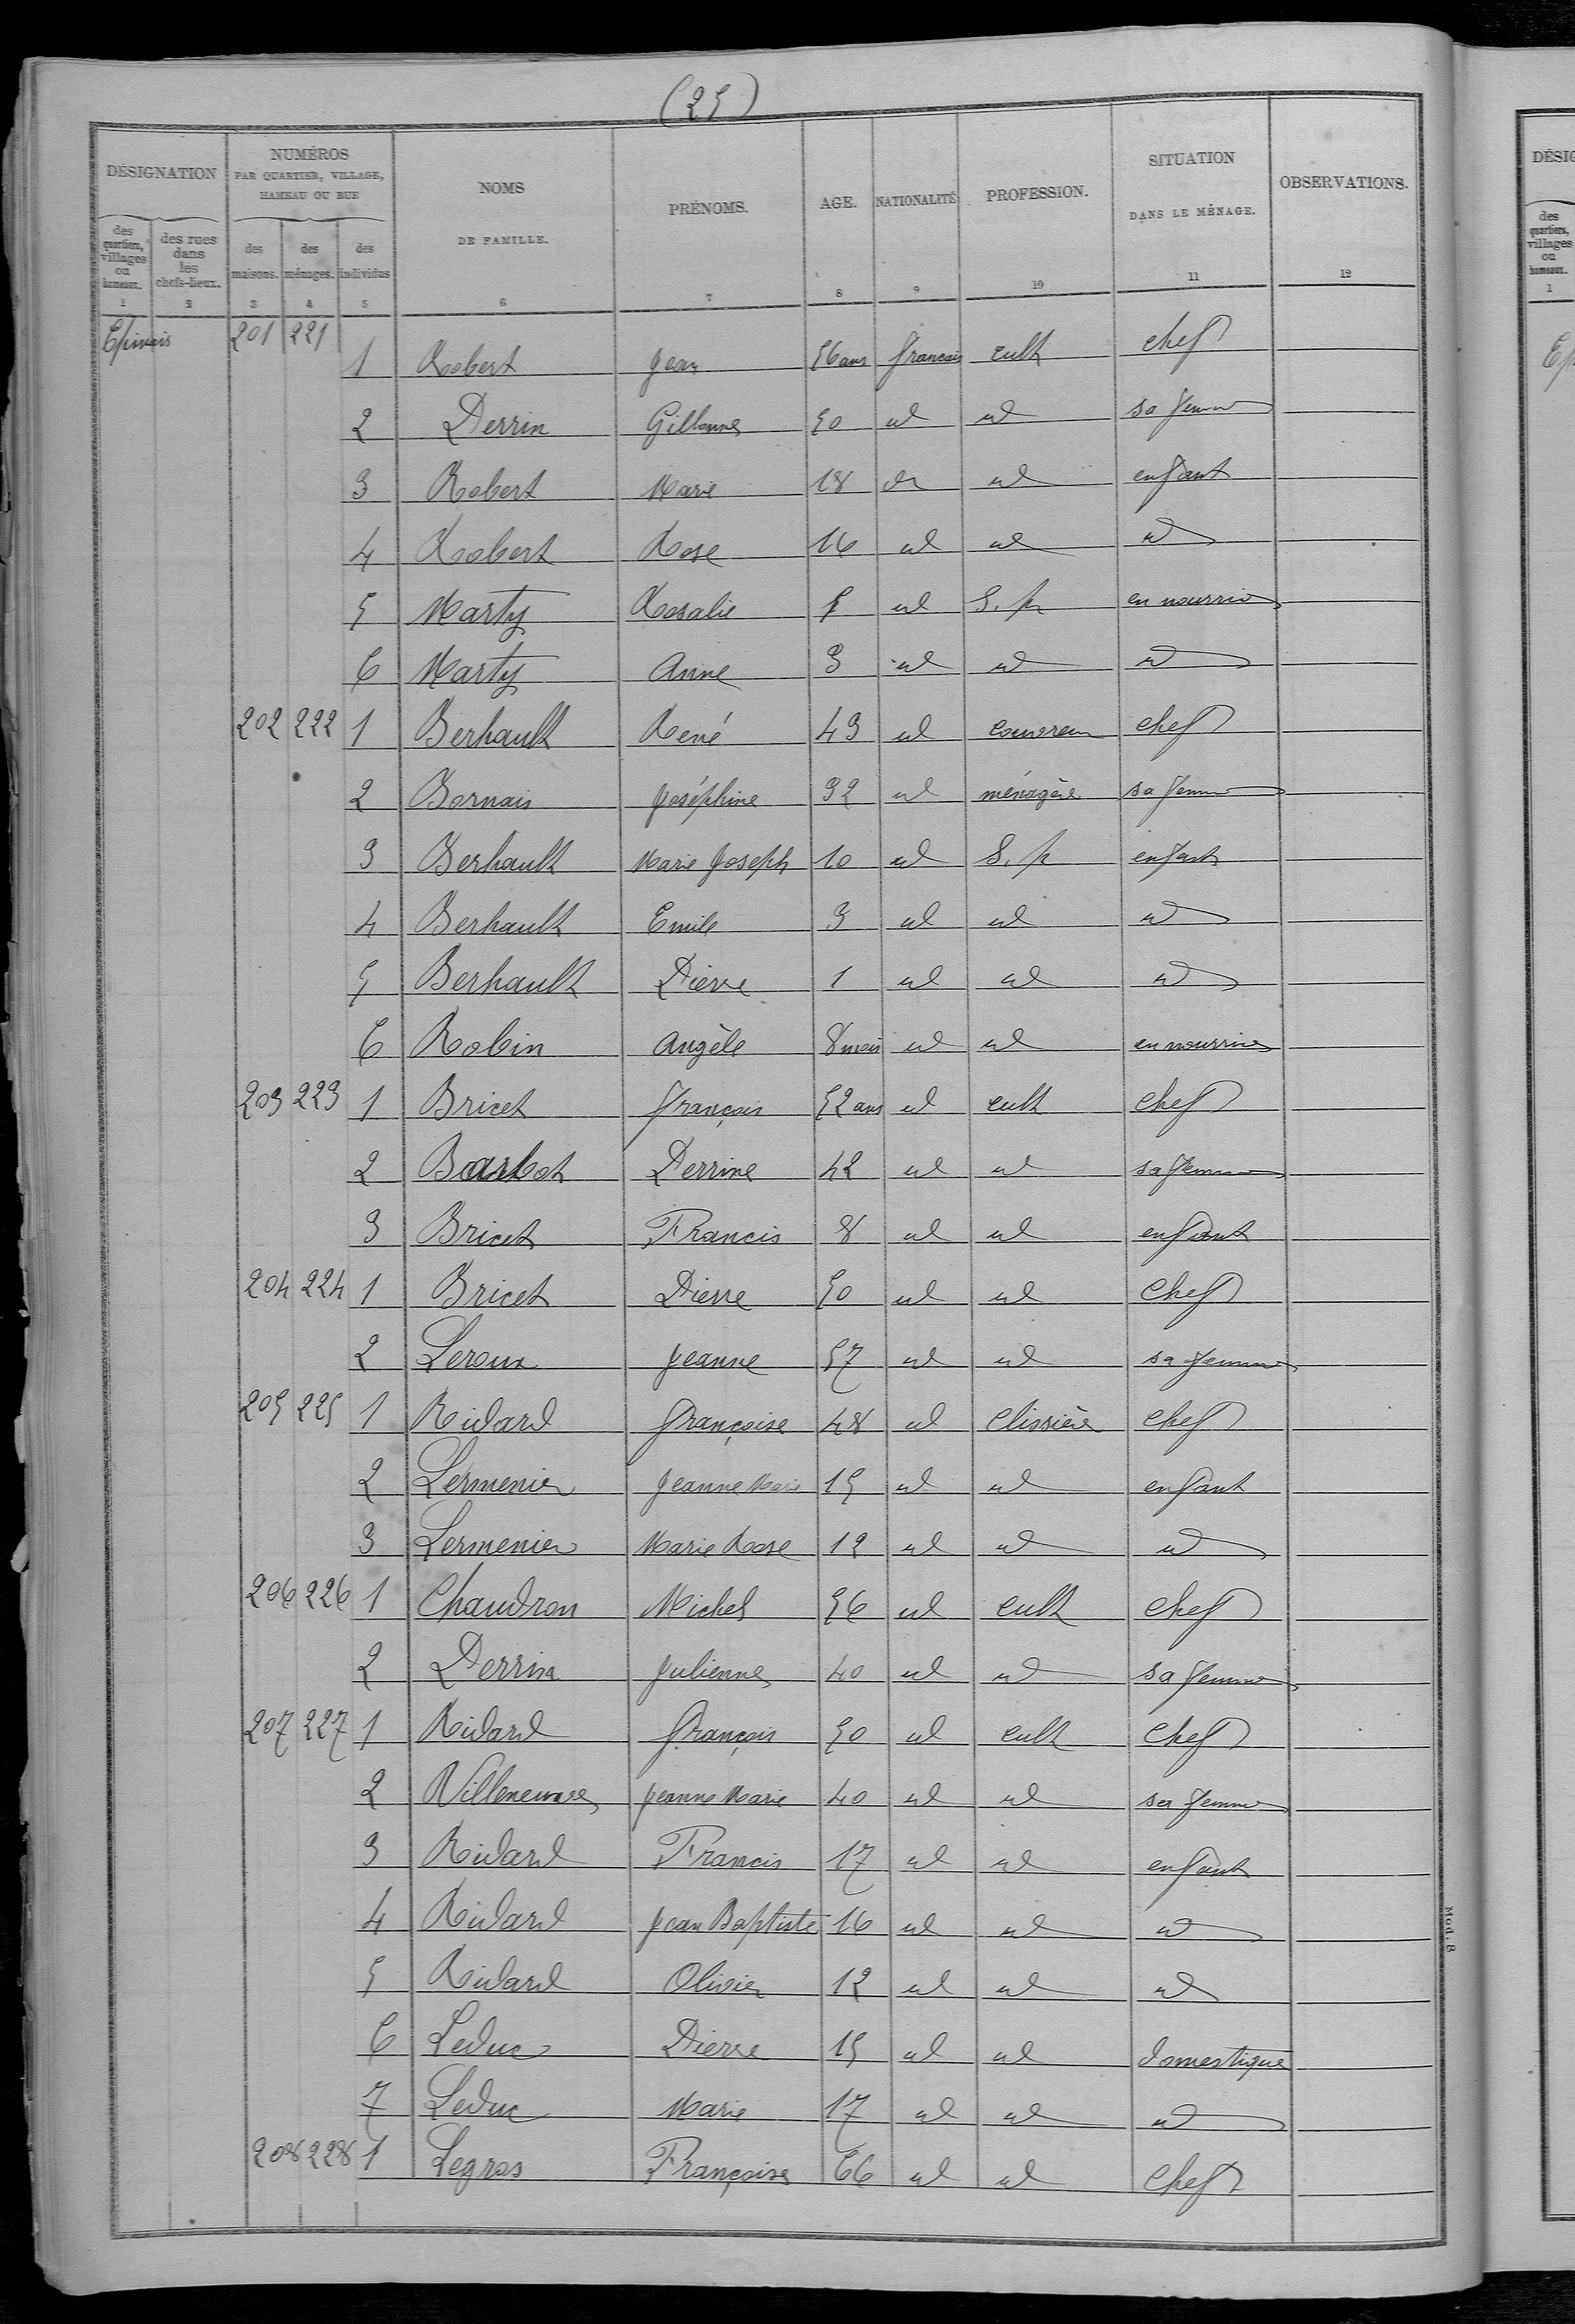 (25)
DÉSIGNATION
NUMÉROS
PAR QUARTIER, VILLAGE,
HAMEAU OU RUE
NOMS
DE FAMILLE.
PRÉNOMS.
AGE.
NATIONALITÉ
PROFESSION.
SITUATION
DANS LE MÉNAGE.
OBSERVATIONS.
des quartiers, villages ou hameaux.
des rues dans les chefs-lieux.
des maisons.
des ménages.
des individus
1 2 3 4 5 6 7 8 9 10 11 12
Epinais 201 221 1 Robert Jean 56 ans français cult chef
2 Perrin Gillonne 50 id id sa femme
3 Robert Marie 18 id id enfant
4 Robert Rose 16 id id id
5 Marty Rosalie 5 id S. p en nourrice
6 Marty Anne 3 id id id
202 222 1 Berhault René 43 id couvreur chef
2 Bornais Joséphine 32 id ménagère sa femme
3 Berhault Marie Joseph 10 id S. p enfant
4 Berhault Emile 3 id id id
5 Berhault Pierre 1 id id id
6 Robin Angèle 8 mois id id en nourrice
203 223 1 Bricet François 52 ans id cult chef
2 Barbot Perrine 42 id id sa femme
3 Bricet Francis 8 id id enfant
204 224 1 Bricet Pierre 50 id id chef
2 Leroux Jeanne 57 id id sa femme
205 225 1 Ridard Françoise 48 id clissière chef
2 Lermenier Jeanne Marie 15 id id enfant
3 Lermenier Marie Rose 12 id id id
206 226 1 Chaudron Michel 56 id cult chef
2 Perrin Julienne 40 id id sa femme
207 227 1 Ridard François 50 id cult chef
2 Villeneuve Jeanne Marie 40 id id sa femme
3 Ridard Francis 17 id id enfant
4 Ridard Jean Baptiste 16 id id id
5 Ridard Olivier 12 id id id
6 Leduc Pierre 15 id id domestique
7 Leduc Marie 17 id id id
208 228 1 Legros Françoise 66 id id chef
Mod. B
DÉSIG
des quartiers, villages ou hameaux.
1